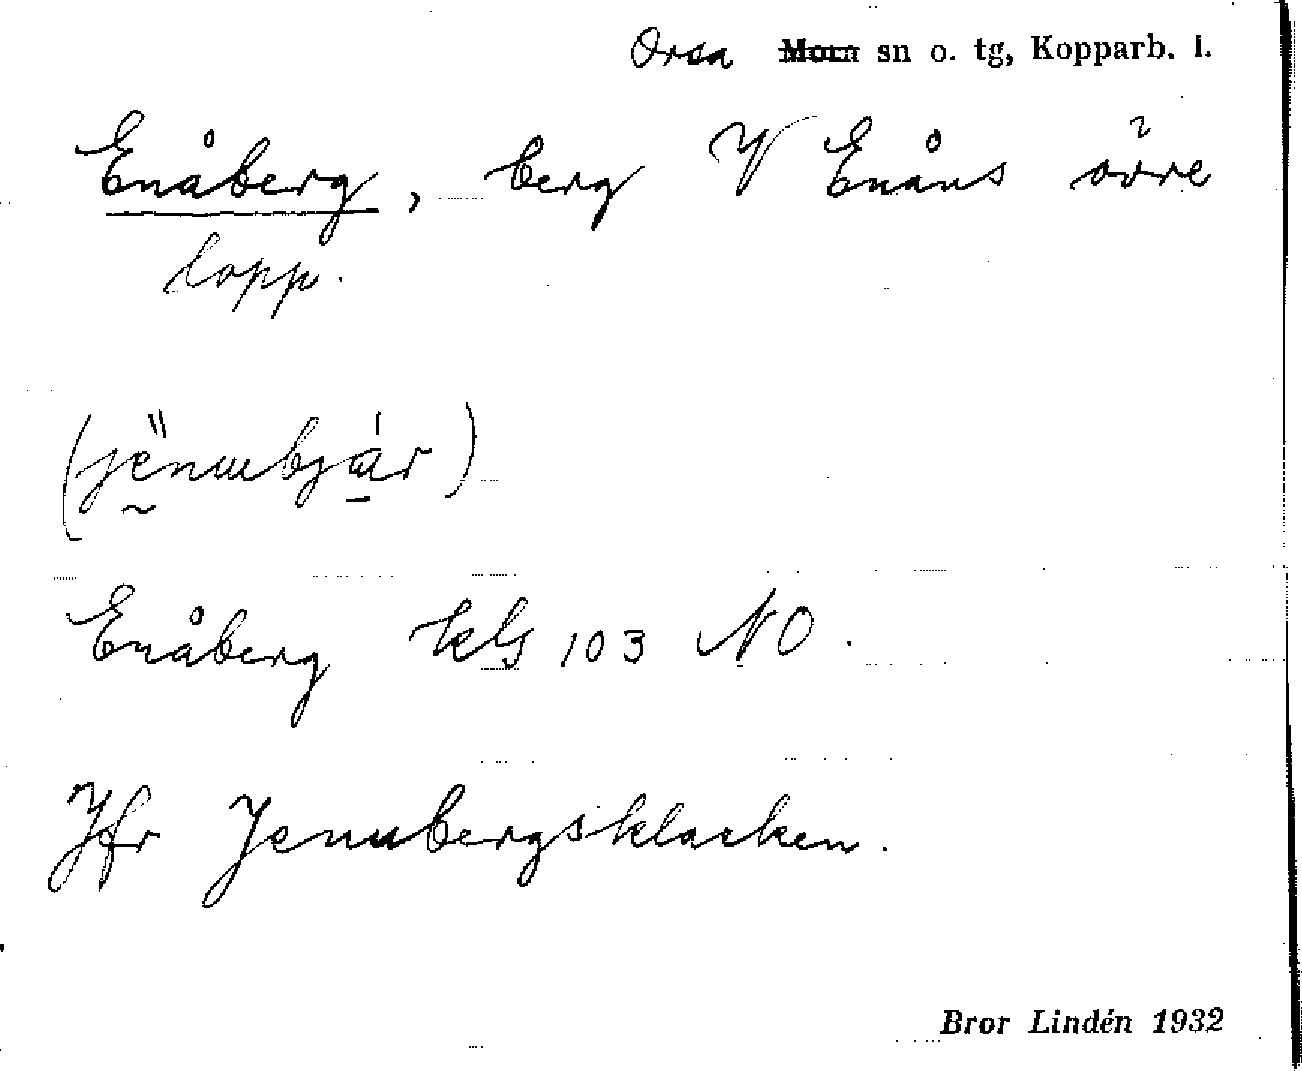 Orsa Mora sn o. tg, Kopparb. l.
Enåberg, berg V Enåns övre
lopp.
(jënɯbjár)
Enåberg kbl 103 NO.
Jfr Jenubergsklacken.
Bror Lindén 1932